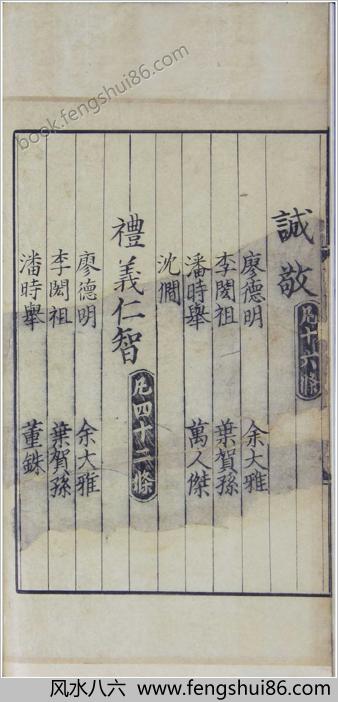 book.fengshui86.com
誠敬 凡十六條
廖德明 余大雅
李閎祖 葉賀孫
潘時舉 萬人傑
沈僩
禮義仁智 凡四十二條
廖德明 余大雅
李閎祖 葉賀孫
潘時舉 董銖
风水八六 www.fengshui86.com